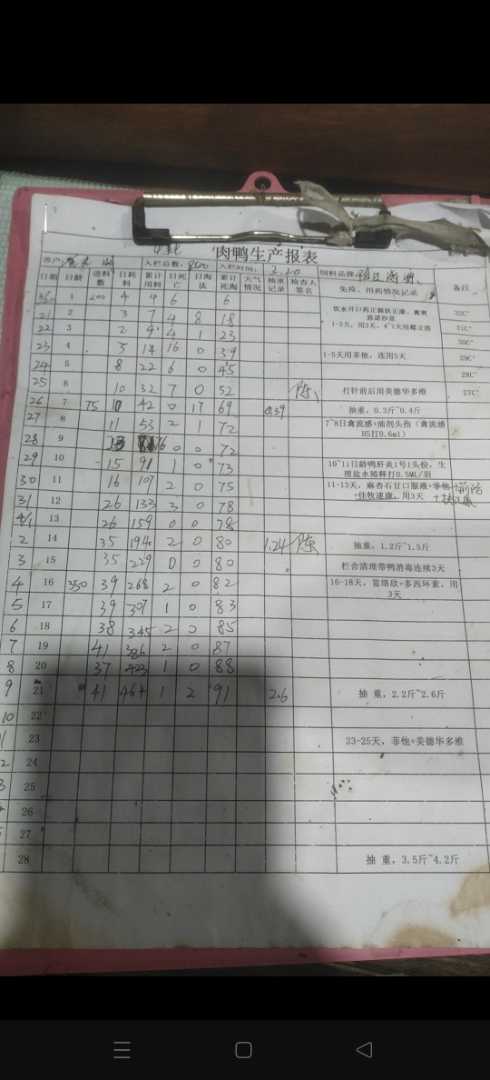 肉鸭生产报表
客户 入栏总数: 8500 入栏时间: 2.20 饲料品牌
日期 日龄 进料数 日耗料 累计用料 日死亡 日淘汰 累计死淘 天气情况 抽重记录 检查人签名 免疫、用药情况记录 备注
1 200 4 4 6 6
21 2 3 7 4 8 18 1-3天, 31C°
22 3 2 4 1 23 30C°
23 4 5 14 16 0 39 1-5天用菲他,连用5天 29C°
24 5 8 22 6 0 45 28C°
25 6 10 32 7 0 52 陈 打针前后用美德华多维 27C°
26 7 75 10 42 0 17 69 0.39 抽重,0.3斤~0.4斤
27 8 11 53 2 1 72 7~8日禽流感+油剂头孢(禽流感H5打0.6ml)
28 9 0 0 72
29 10 15 91 1 0 73 10~11日龄鸭肝炎1号1头份,生理盐水稀释打0.5ML/羽
30 11 16 107 2 0 75 11-13天,麻杏石甘口服液+
31 12 26 133 3 0 78 佳牧速康,用3天
4/1 13 26 159 0 0 78
2 14 35 194 2 0 80 1.24 陈 抽重,1.2斤~1.3斤
3 15 35 229 0 0 80 栏舍清理带鸭消毒连续3天
4 16 350 39 268 2 0 82 16-18天,富络欣+多西环素,用3天
5 17 39 307 1 0 83
6 18 38 345 2 0 85
7 19 41 386 2 0 87
8 20 37 423 1 0 88
9 21 41 464 1 2 91 2.6 抽 重,2.2斤~2.6斤
10 22
23 23-25天,菲他+美德华多维
24
25
26
27
28 抽 重,3.5斤~4.2斤